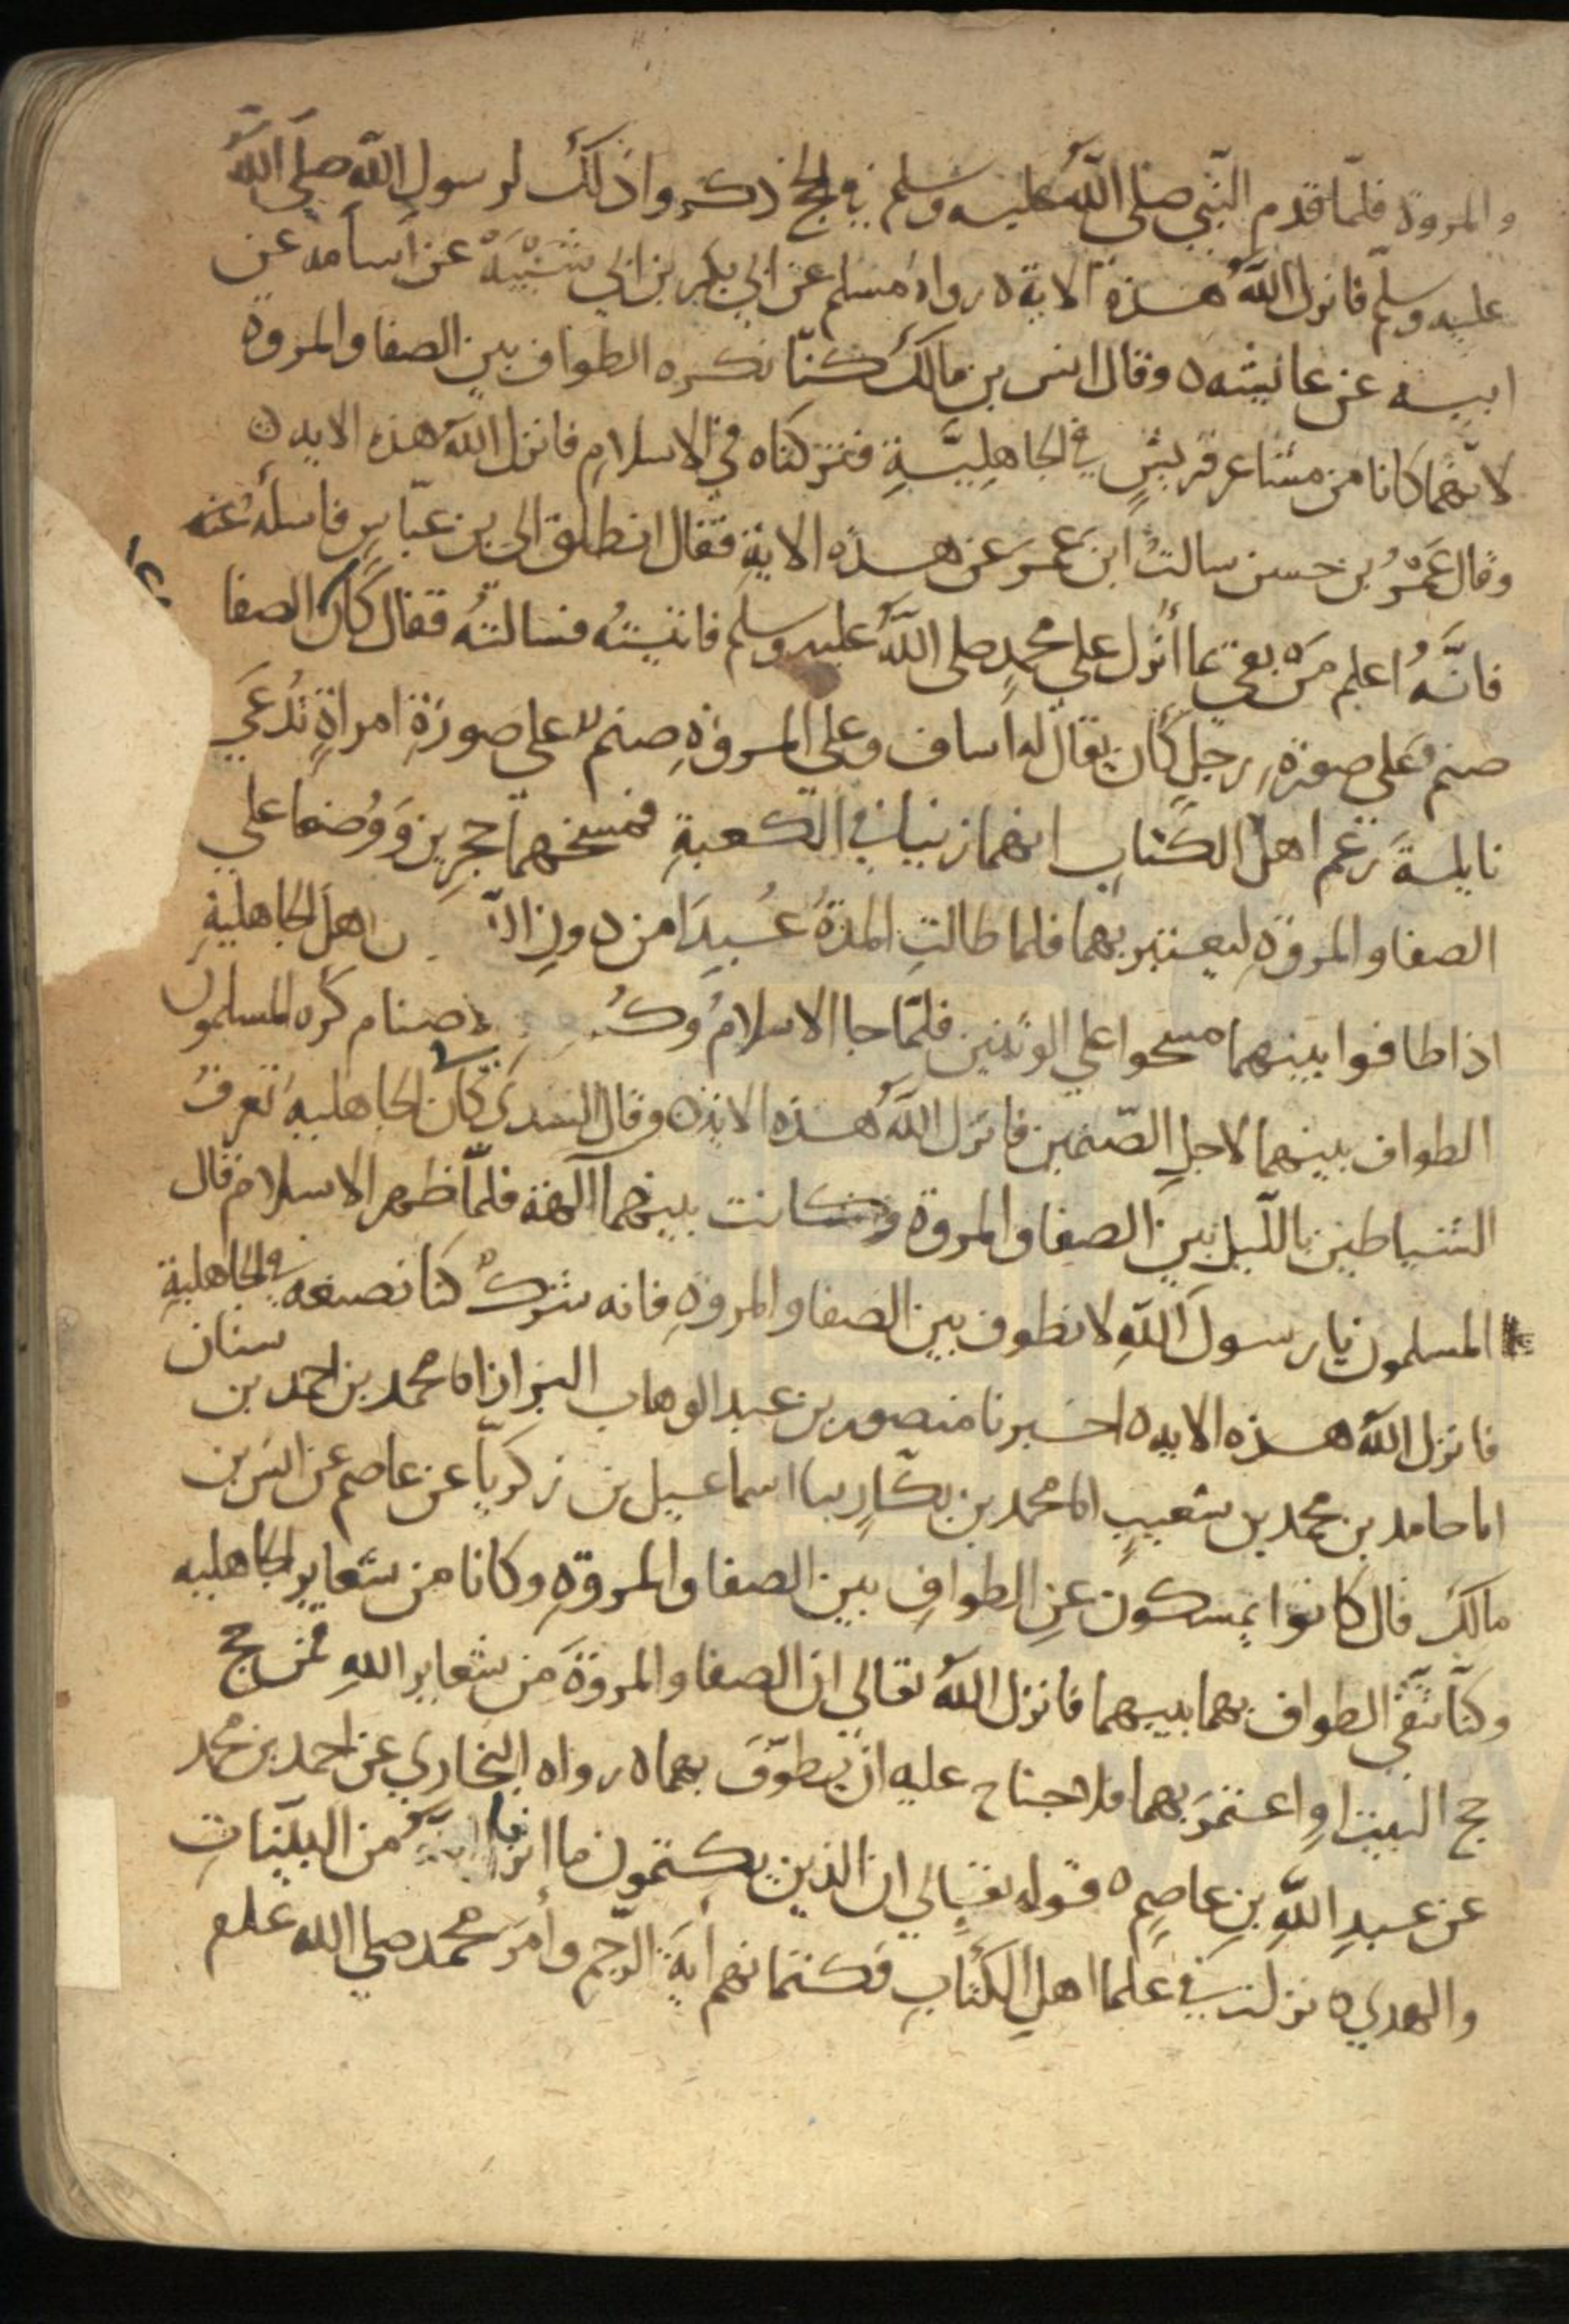 والمروة فلمّا قدم النّبي صلي اللهُ عليه وسلم في الحج ذكروا ذلك لرسول الله صلي اللهُ
عليه وسلّم فانزل اللهُ هذه الاية ه رواه مسلم عن ابي بكر بن ابي شَيْبَةَ عن اسامة عن
ابيه عن عائيشه ه وقال انس بن مالك كنّا نكره الطواف بين الصفا والمروة
لانّهما كانا من مشاعر قريشٍ في الجاهِليَّةِ فتركناه في الاسلامِ فانزل الله هذه الايه ه
وقال عَمْرُ بن حسن سالتُ ابن عمرَ عن هذه الايةِ فقال انطلق الى بن عبّاسٍ فاسله عنه
فانَّهُ اعلم مَن بقي بما أُنْزل علي محمدٍ صلى اللهُ عليه وسلم فاتيتُه فسالتُه فقال كان الصفا
صنم علي صورةِ رجلٍ كان يقال له اساف وعلي المروةِ صنم علي صورةِ امراةٍ تُدعَي
نايلةَ زعم اهل الكتابِ انهما زنيا في الكعبةِ فمسخهما حجرين وَوُضعا علي
الصفا والمروةِ ليعتبر بهما فلما طالتِ المدةُ عُبِدَا من دونِ الله ن اهل الجاهليةِ
اذا طافوا بينهما مسحوا علي الوثنين فلمّا جا الاسلامُ وكُ صنام كره المسلمون
الطواف بينهما لاجلِ الصّنمين فانزل اللهُ هذه الاية ه وقال السدي كان في الجاهليه تعزفُ
الشياطين بالليل بين الصفا والمروة وكانت بينهما آلهة فلمّا ظهر الاسلام قال
المسلمون يا رسول اللهِ لا نطوف بين الصفا والمروةِ فانه شركٌ كنا نصنعه في الجاهليةِ
فانزل اللهُ هذه الايه ه اخبرنا منصور بن عبد الوهاب البزاز انا محمد بن احمد بن سنان
انا حامد بن محمد بن شعيبٍ انا محمد بن بكّارٍ سا اسماعيل بن زكريّا عن عاصم عن انس بن
مالك قال كانوا يمسكون عن الطوافِ بين الصفا والمروةِ وكانا من شعاير الجاهليه
وكنّا نتّقي الطواف بهما بينهما فانزل اللهُ تعالي ان الصفا والمروةَ من شعاير اللهِ فمن حج
حج البيت اوِ اعتمرَ بهما فلا جناح عليه ان يطوّفَ بهما ه رواه البخاري عن احمد بن محمد
عن عبدِ اللهِ بنِ عاصمٍ ه قوله تعالي ان الذين يكتمون ما انزلنا من البيّناتِ
والهدي ه نزلت في علما اهلِ الكتابِ فكتمانهم أيَةَ الرّجم وأمرَ محمد صلي الله علم